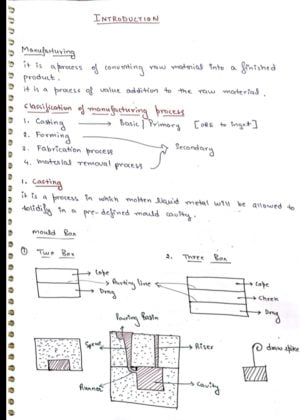 INTRODUCTION
Manufacturing
it is a process of converting raw material into a finished
product.
it is a process of value addition to the raw material.
Classification of manufacturing process
1. Casting → Basic / Primary [ORE to Ingot]
2. Forming
3. Fabrication process → Secondary
4. Material removal process
1. Casting
it is a process in which molten liquid metal will be allowed to
solidify in a pre-defined mould cavity.
Mould Box
① Two Box
2. Three Box
Cope
Parting line
Drag
Cope
Cheek
Drag
Pouring Basin
Sprue
Riser
draw spike
Runner
Cavity